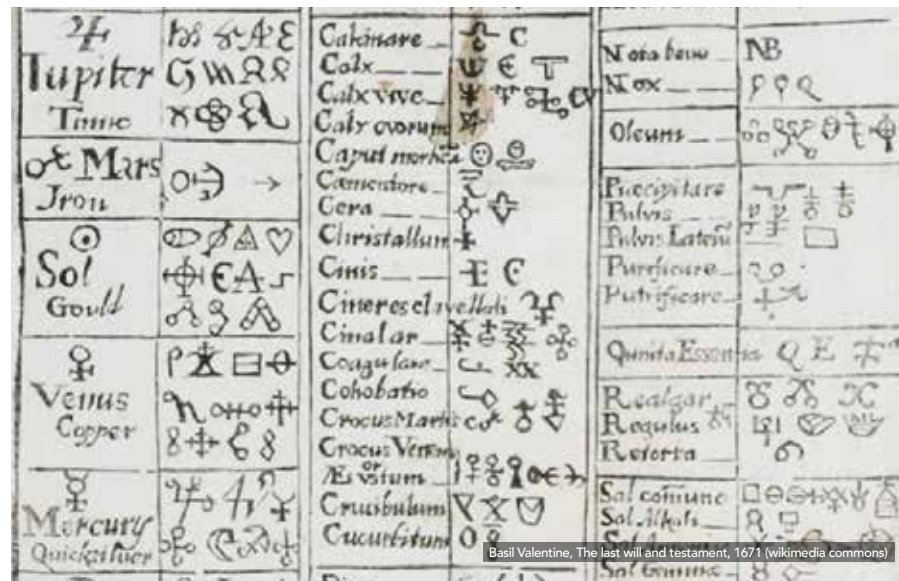 Jupiter
Tinne
Mars
Iron
Sol
Gould
Venus
Copper
Mercury
Quicksilver
Calcinare
Calx
Calx vive
Calx ovorum
Caput mortuum
Cera
Christallum
Cinis
Cineres clavellati
Coagulare
Cohobatio
Crocus Martis
Crocus Veneris
or
Æs ustum
Crucibulum
Cucurbitum
Nota bene NB
Nox
Oleum
Præcipitare
Pulvis
Pulvis Laterū
Purificare
Putrificare
Quinta Essentia Q E
Realgar
Regulus
Retorta
Sal comune
Sal Alkali
Sal Gemmæ
Basil Valentine, The last will and testament, 1671 (wikimedia commons)